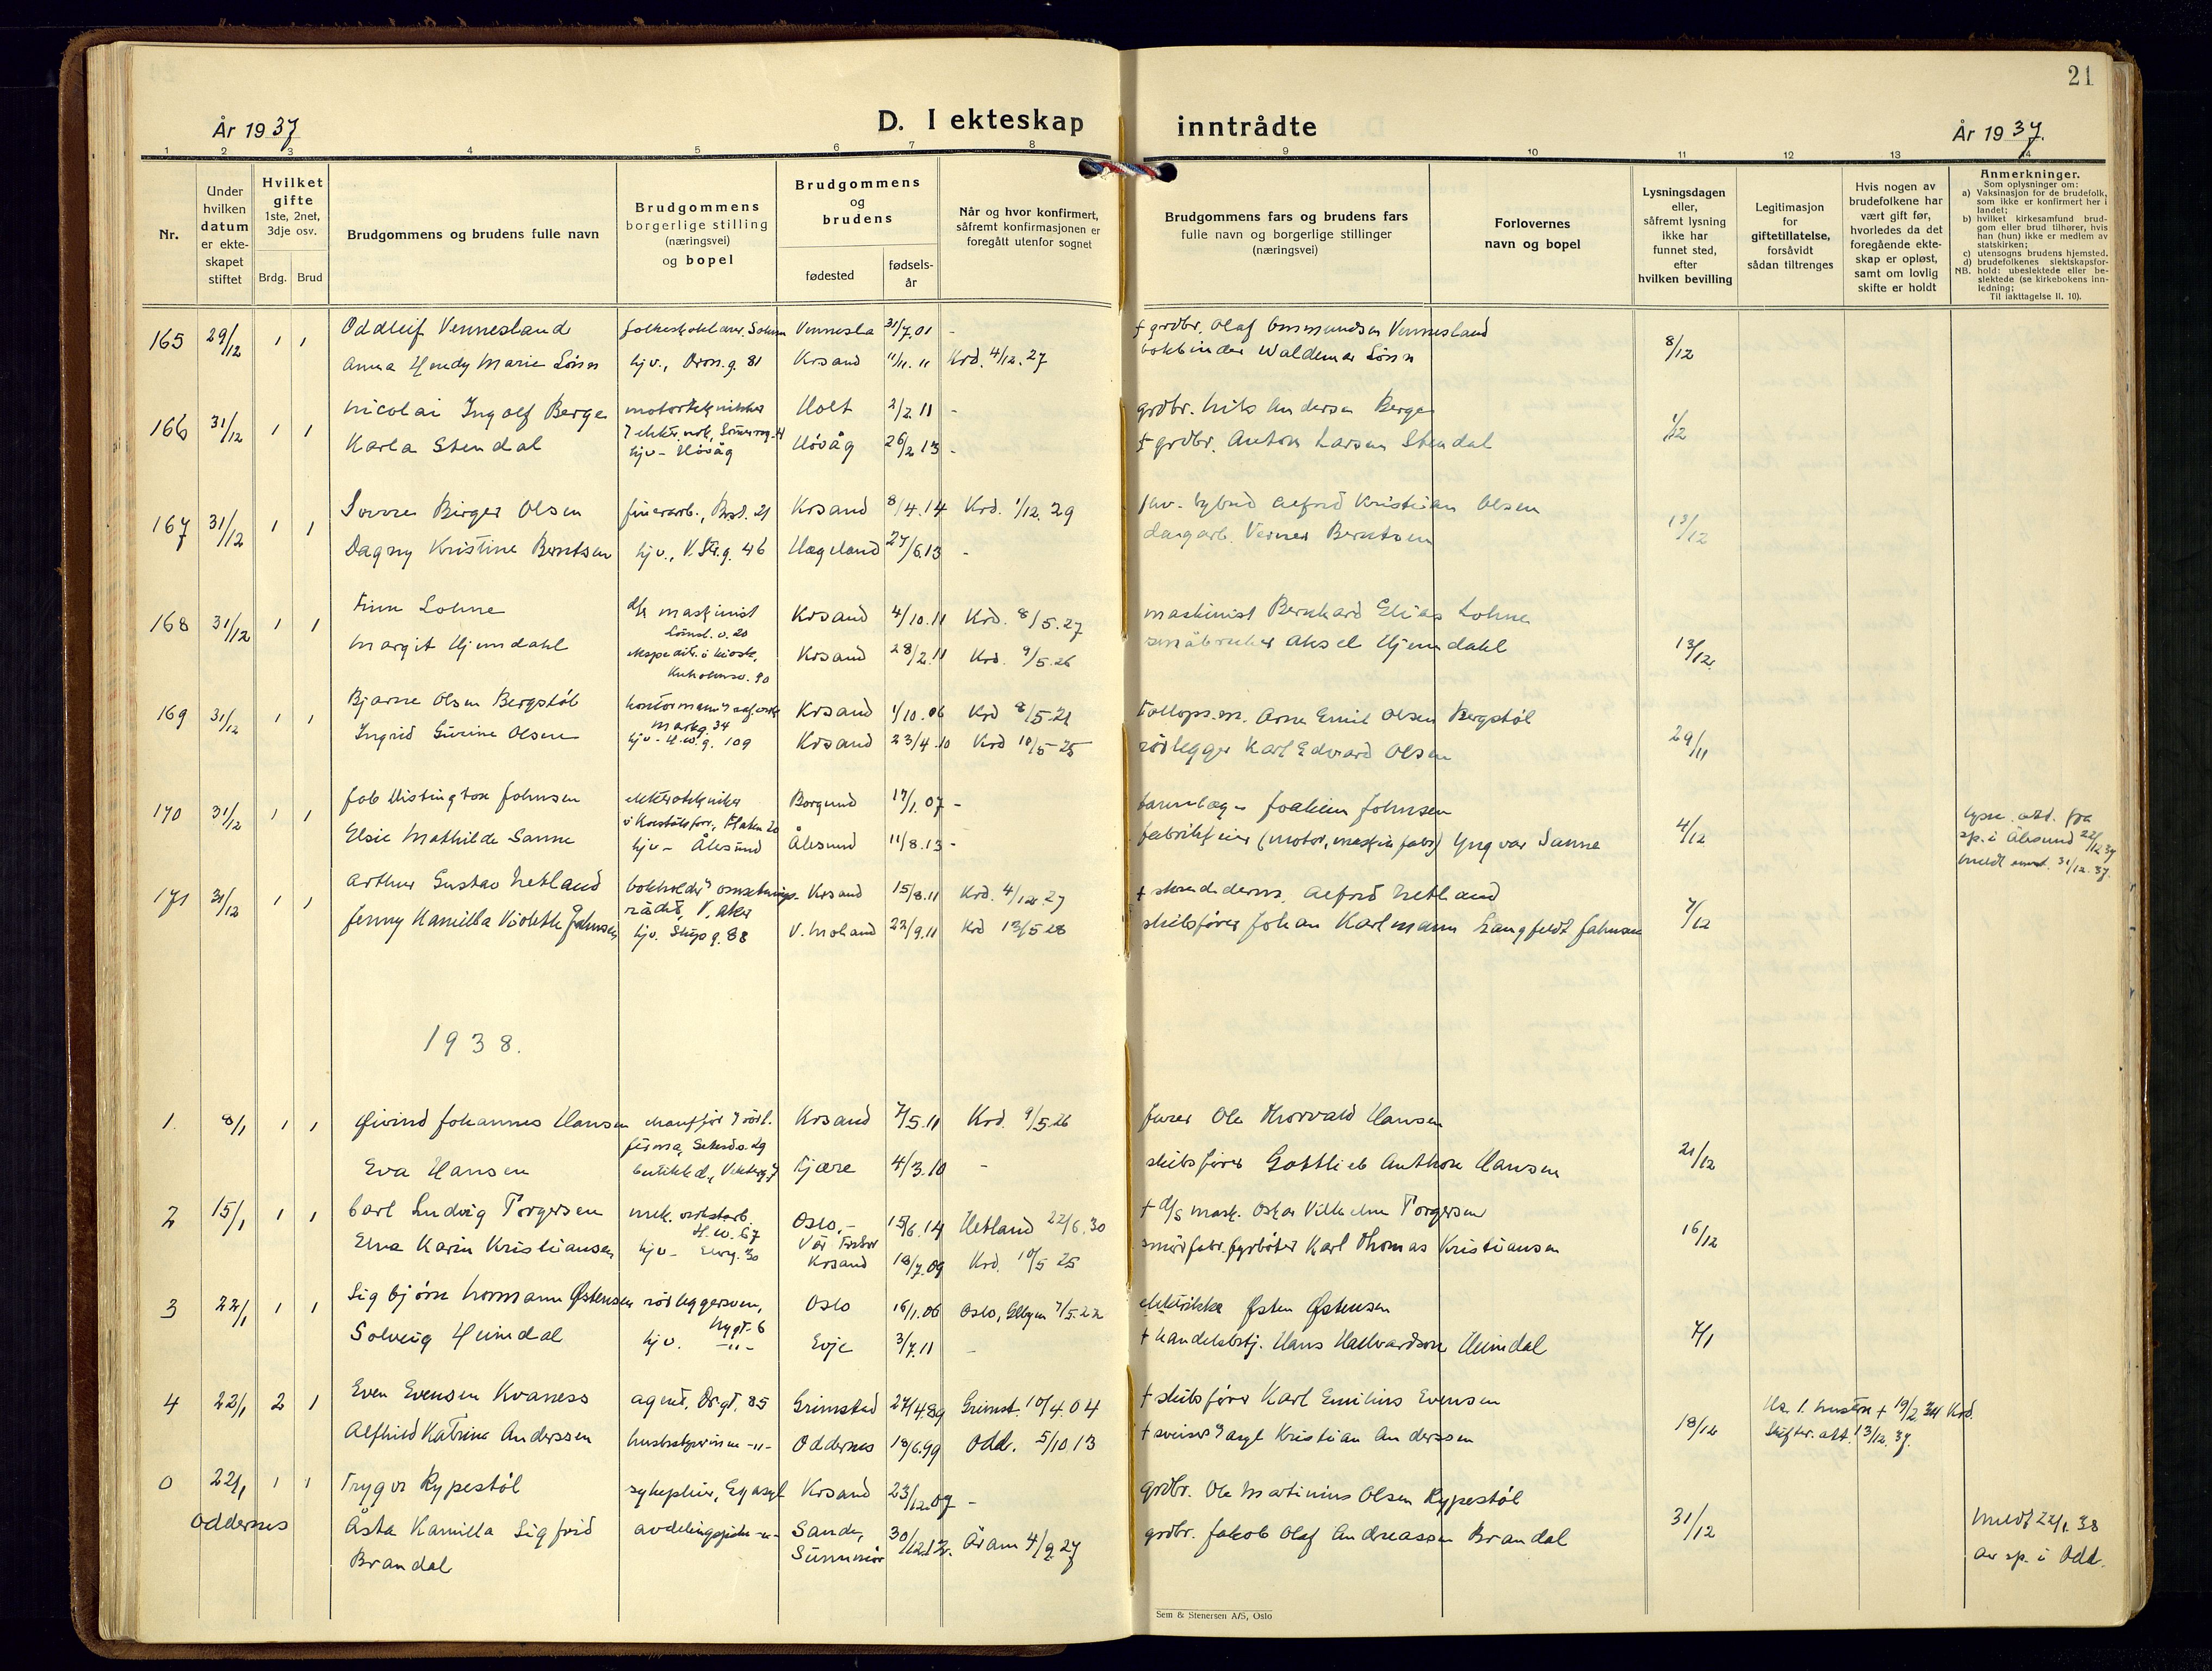 21
År 1937
D. I ekteskap inntrådte
År 1937.
1 2 3 4 5 6 7 8 9 10 11 12 13 14
Nr.
Under hvilken datum er ekte-skapet stiftet
Hvilket gifte 1ste, 2net, 3dje osv.
Brdg. Brud
Brudgommens og brudens fulle navn
Brudgommens borgerlige stilling (næringsvei) og bopel
Brudgommens og brudens
fødested
fødsels-år
Når og hvor konfirmert, såfremt konfirmasjonen er foregått utenfor sognet
Brudgommens fars og brudens fars fulle navn og borgerlige stillinger (næringsvei)
Forlovernes navn og bopel
Lysningsdagen eller, såfremt lysning ikke har funnet sted, efter hvilken bevilling
Legitimasjon for giftetillatelse, forsåvidt sådan tiltrenges
Hvis nogen av brudefolkene har vært gift før, hvorledes da det foregående ekte-skap er opløst, samt om lovlig skifte er holdt
Anmerkninger.
Som oplysninger om:
a) Vaksinasjon for de brudefolk, som ikke er konfirmert her i landet;
b) hvilket kirkesamfund brud-gom eller brud tilhører, hvis han (hun) ikke er medlem av statskirken;
c) utensogns brudens hjemsted.
d) brudefolkenes slektskapsfor-hold: ubeslektede eller be-slektede (se kirkebokens inn-ledning;
NB.
Til iakttagelse II. 10).
165 29/12 1 1 Oddleif Vennesland Vennesla 31/7.01 - + grdbr. Olaf Ommundsen Vennesland
Anna Marie hjv., Dronn.g. 81 Krsand 11/11.11 Krd. 4/12.27 bokbinder Waldemar 8/12
166 31/12 1 1 Nicolai Ingolf Berge Holt 2/2 11 - grdbr. Nils Andersen Berge
Karla Stendal hjv - Høvåg Høvåg 26/2 13 - + grdbr. Anton Larsen Stendal
167 31/12 1 1 Sverre Birger Olsen Krsand 8/4.14 Krd. 1/12.29 Alfred Kristian Olsen
Dagny Kristine Berntsen hjv., V.Str.g. 46 Hægeland 27/6.13 - Verner Berntsen 13/12
168 31/12 1 1 Finn Lohne maskinist Krsand 4/10.11 Krd. 8/5.27 maskinist Bernhard Elias Lohne
Margit Hjemdahl Krsand 28/2.11 Krd. 9/5.26 småbruker Aksel Hjemdahl 13/12.
169 31/12 1 1 Bjarne Olsen Bergstøl Markg. 34 Krsand 1/10.06 Krd 8/5.21 Arne Emil Olsen Bergstøl
Ingrid Olsen hjv - H.W.g. 109 Krsand 23/4.10 Krd 10/5 25 rørlegger Karl Edvard Olsen 29/11
170 31/12 1 1 Job Johnsen Borgund 17/1.07 - Joakim Johnsen
Elsie Mathilde Sanne hjv - Ålesund Ålesund 11/8.13 - fabrikkeier Yngvar Sanne 4/12
sp. i Ålesund 22/12 37
171 31/12 1 1 Arthur Gustav Netland Krsand 15/8.11 Krd. 4/12.27 + Alfred Netland
Jenny Kamilla Violette Johnsen hjv. 88 22/9.11 Krd 13/5 28 skibsfører Johan Karlmann Langfeldt Johnsen 7/12
1938.
1. 8/1 1 1 Øivind Johannes Hansen Krsand 7/5.11 Krd. 9/5.26 Ole Thorvald Hansen
Eva Hansen Fjære 4/3.10 - skibsfører Gottlieb Anthon Hansen 21/12
2 15/1 1 1 Carl Ludvig Torgersen H.W. 67 Oslo, - 15/6.14 Hetland 22/6.30 + D/S mask. Oskar Vilhelm Torgersen
Elna Karin Kristiansen hjv - Elveg. 30 Krsand 18/7.09 Krd. 10/5 25 Karl Thomas Kristiansen 16/12
3 22/1 1 1 Sigbjørn Normann Østensen rørleggersven, Nygt. 6 Oslo 16/1.06 Oslo, 7/5.22 Østen Østensen
Solveig Heimdal hjv. -"- Evje 3/7.11 - + Hans Hallvardson Heimdal 7/1
4 22/1 2 1 Even Evensen Kvaness agent, Dr.gt. 85 Grimstad 27/4.89 Grimst. 10/4.04 + skibsfører Karl Emilius Evensen
Alfhild Katrine Anderssen -"- Oddernes 18/6.99 Odd. 5/10 13 + Kristian Anderssen 18/12
Ha. 1. hustru + 19/2.34 Krd.
Skifter. att. 13/12.37.
0 22/1 1 1 Trygve Rypestøl sykepleier, Eg asyl Krsand 23/12.07 - grdbr. Ole Martinius Olsen Rypestøl
Oddernes Åsta Kamilla Sigfrid -"- Sande, 30/12.12. Åram 4/9.27 grdbr. Jakob Olaf Andreassen Brandal 31/12
Brandal Sunnmør
Meldt 22/1.38
av sp. i Odd.
Sem & Stenersen A/S, Oslo